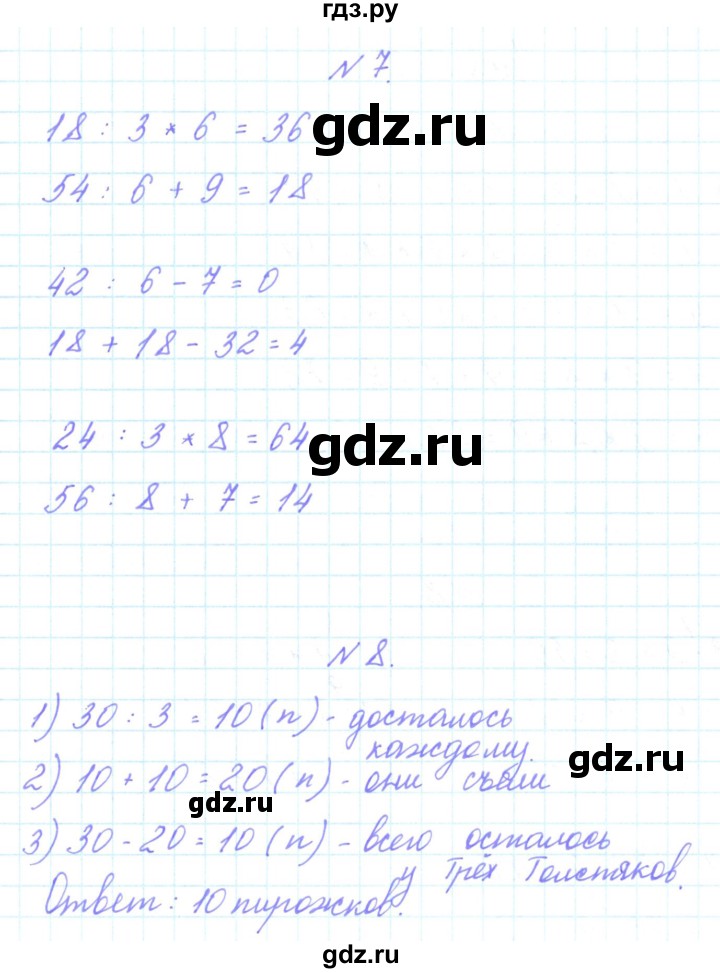 гдз.ру
N 7.
18 : 3 * 6 = 36
gdz.ru
54 : 6 + 9 = 18
42 : 6 - 7 = 0
18 + 18 - 32 = 4
24 : 3 * 8 = 64
gdz.ru
56 : 8 + 7 = 14
N 8.
1) 30 : 3 = 10 (п) - досталось
каждому.
gdz.ru
2) 10 + 10 = 20 (п) - они съели
gdz.ru
3) 30 - 20 = 10 (п) - всего осталось
у Трёх Толстяков.
Ответ : 10 пирожков.
gdz.ru